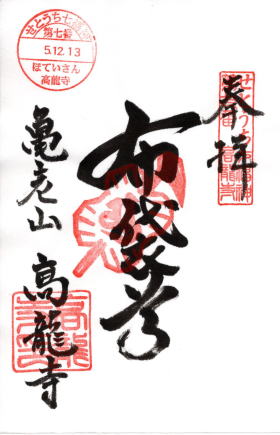 奉拝
布袋尊
亀老山 高龍寺
せとうち七福神
第七番
5.12.13
ほていさん
高龍寺